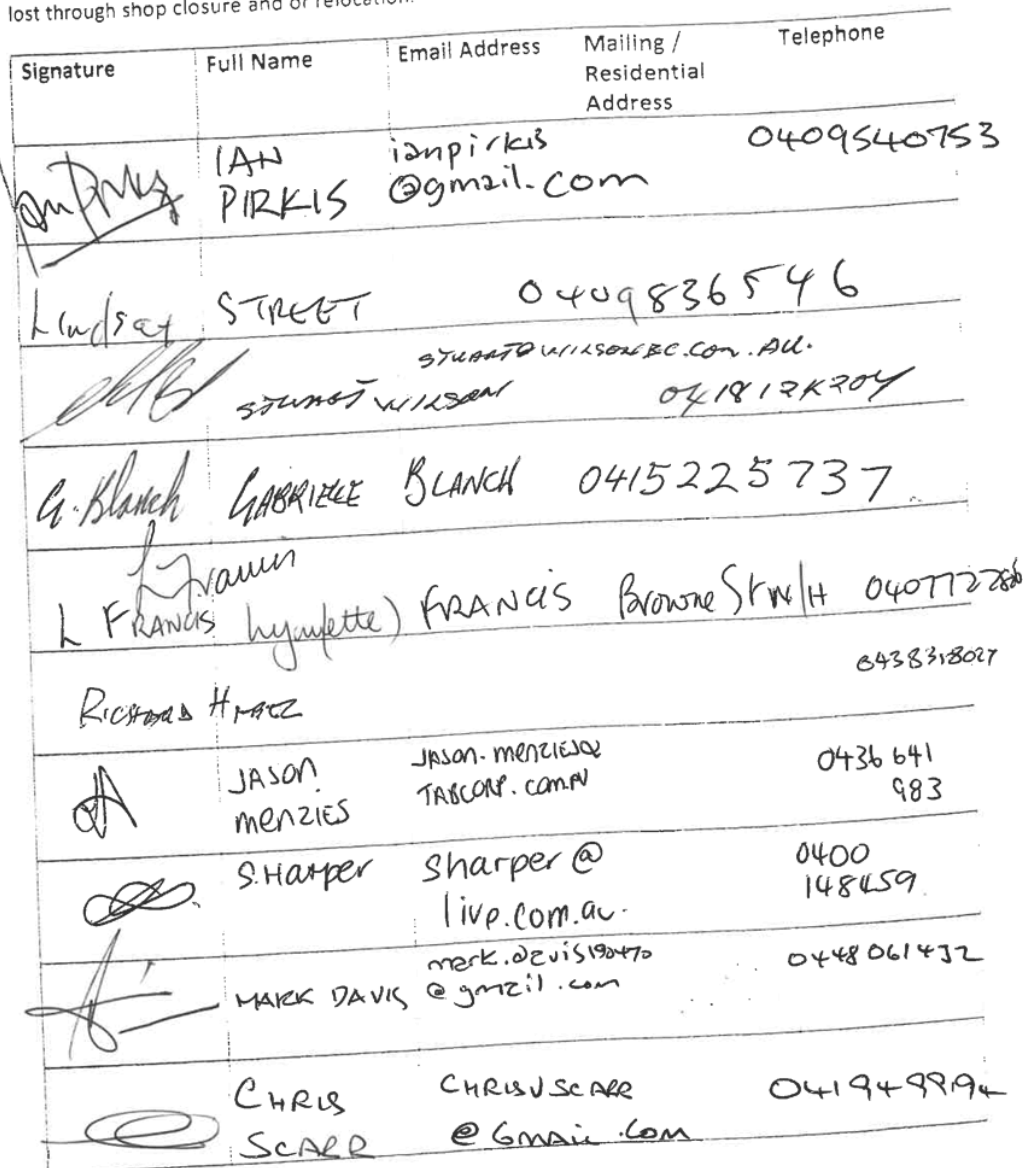 lost through shop closure and or relocation.
Signature Full Name Email Address Mailing / Residential Address Telephone
IAN PIRKIS ianpirkis@gmail.com 0409540753
Lindsay STREET 0409836546
STUART WILSON 
G. Blanch GABRIELE BLANCH 0415225737
L FRANCIS Lynnette) FRANCIS Browne St W/H
RICHARD 0438318027
JASON MENZIES JASON.MENZIES@TABCORP.COM.AU 0436 641 983
S. Harper sharper@live.com.au. 0400 148459
MARK DAVIS mark.davis190470@gmail.com 0448061432
CHRIS SCARR CHRISJSCARR@GMAIL.COM